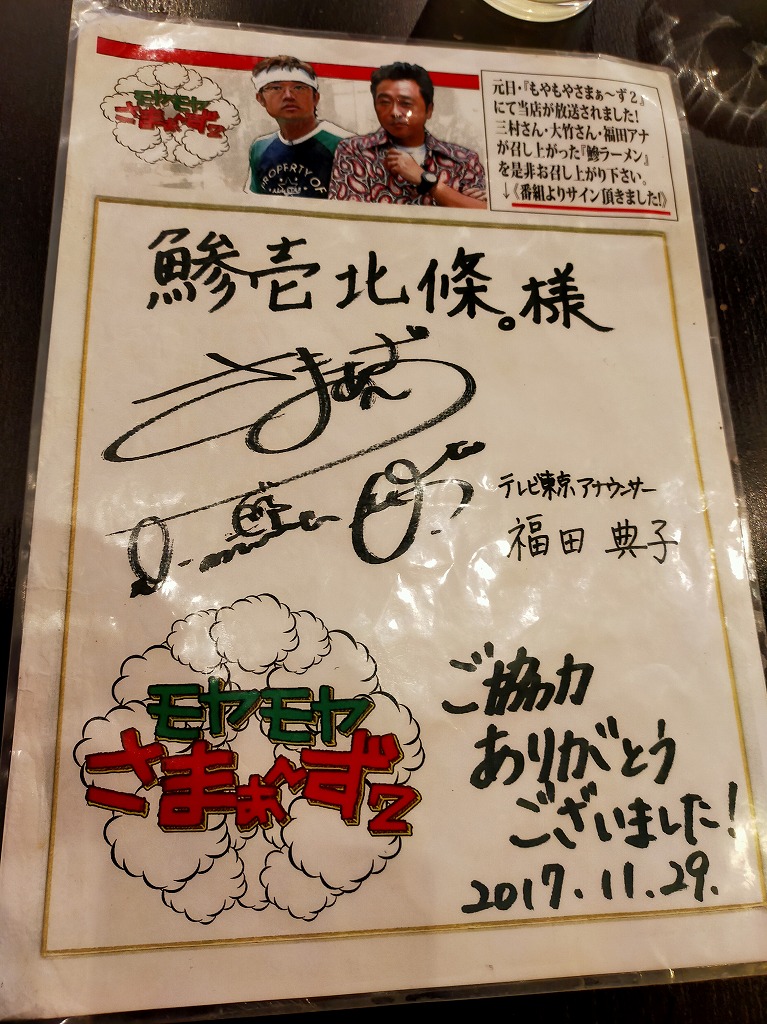 モヤモヤ
さまぁ~ず2
PROPERTY OF
元日・『もやもやさまぁ~ず2』
にて当店が放送されました!
三村さん・大竹さん・福田アナ
が召し上がった『鯵ラーメン』
を是非お召し上がり下さい。
↓《番組よりサイン頂きました!》
鯵壱北條。様
さまぁ~ず
テレビ東京アナウンサー
福田 典子
モヤモヤ
さまぁ~ず2
ご協力
ありがとう
ございました!
2017.11.29.